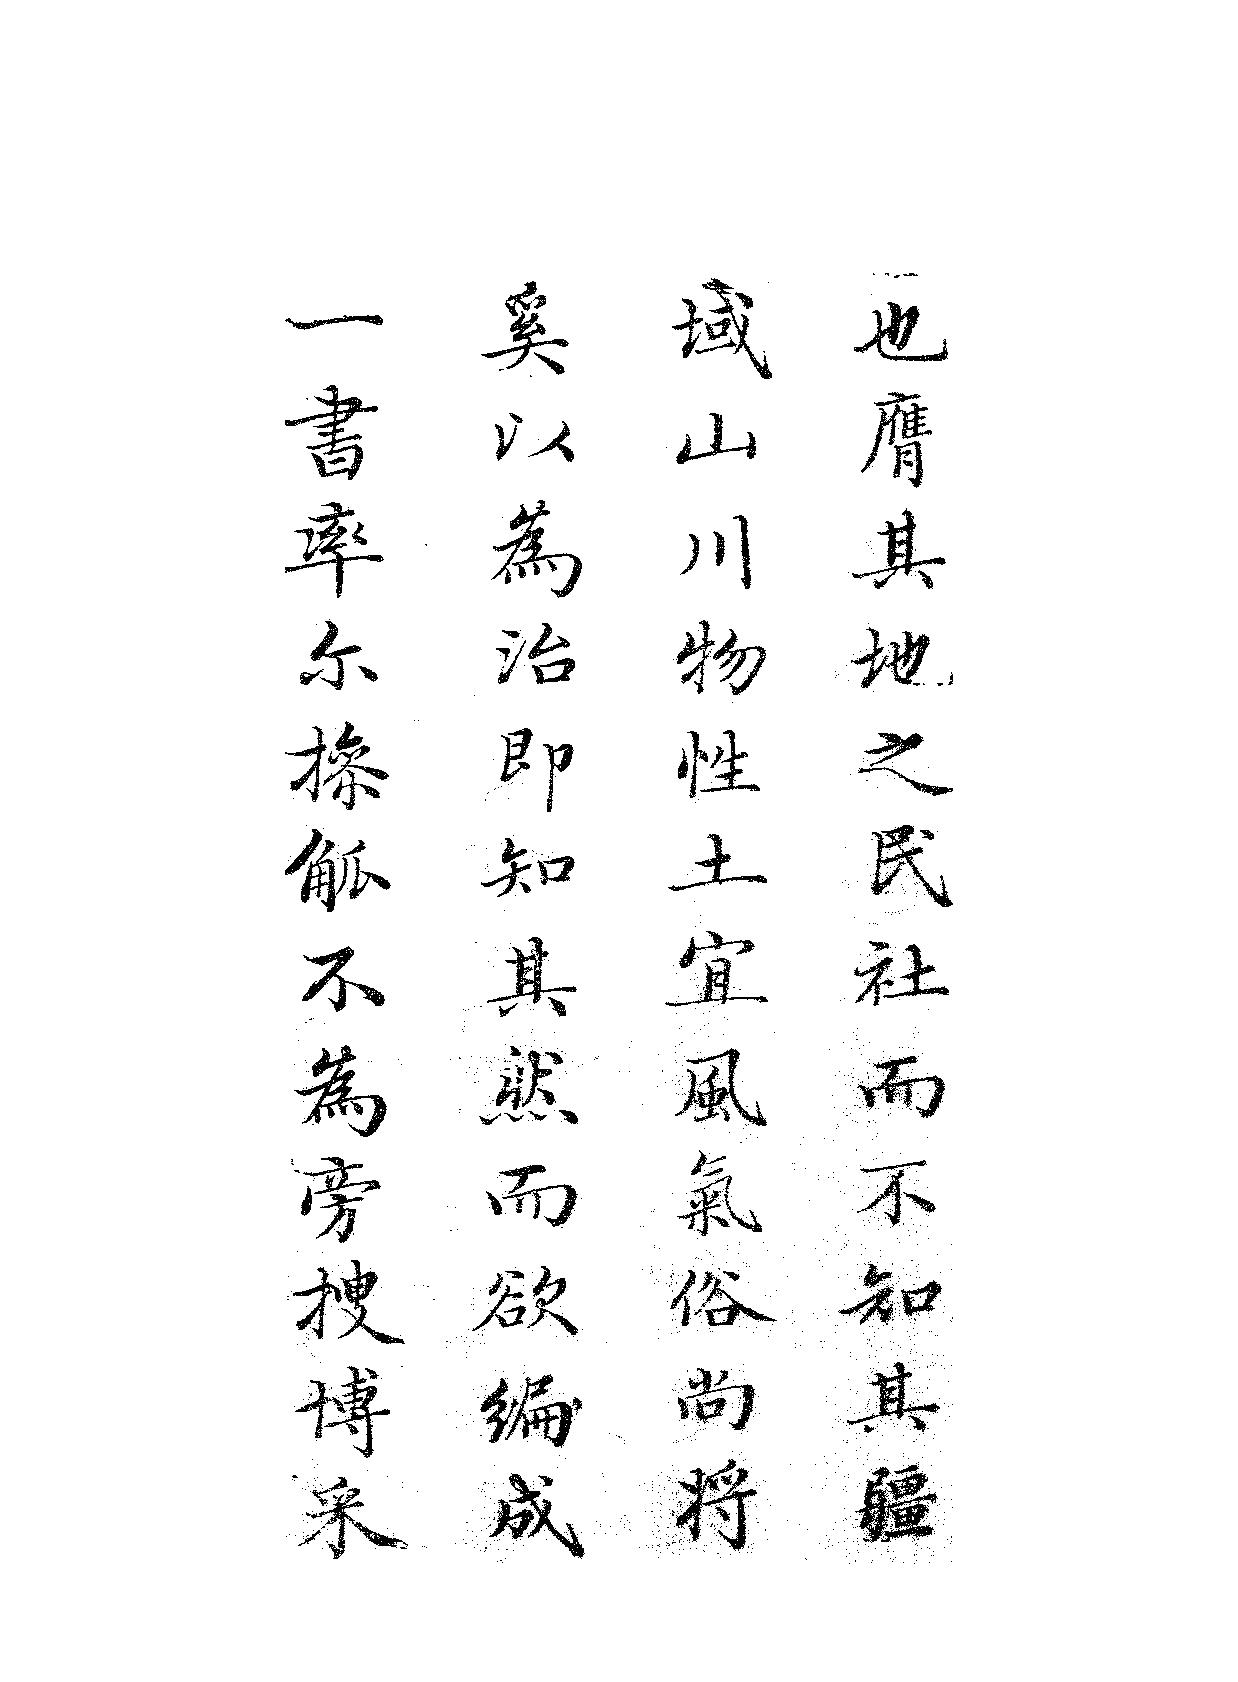 也膺其地之民社而不知其疆
域山川物性土宜風氣俗尚將
奚以為治即知其然而欲編成
一書率尔操觚不為旁搜博采